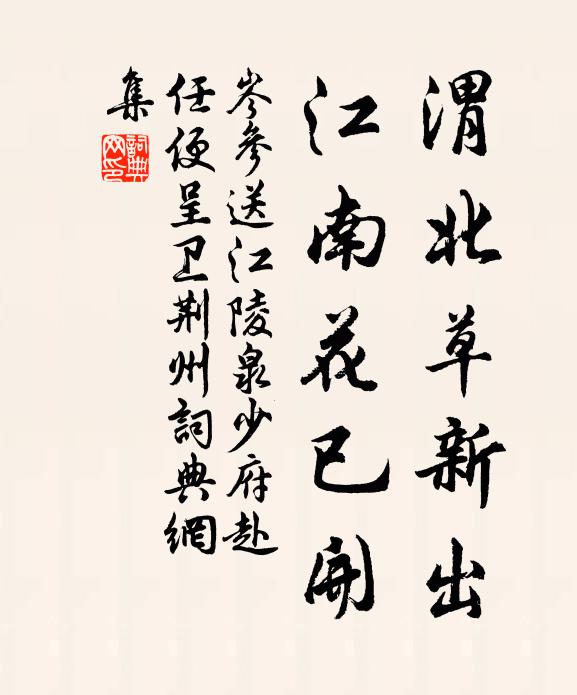 渭北草新出
江南花已開
岑參送江陵泉少府赴
任便呈卫荆州詞典網
集
詞典
网印